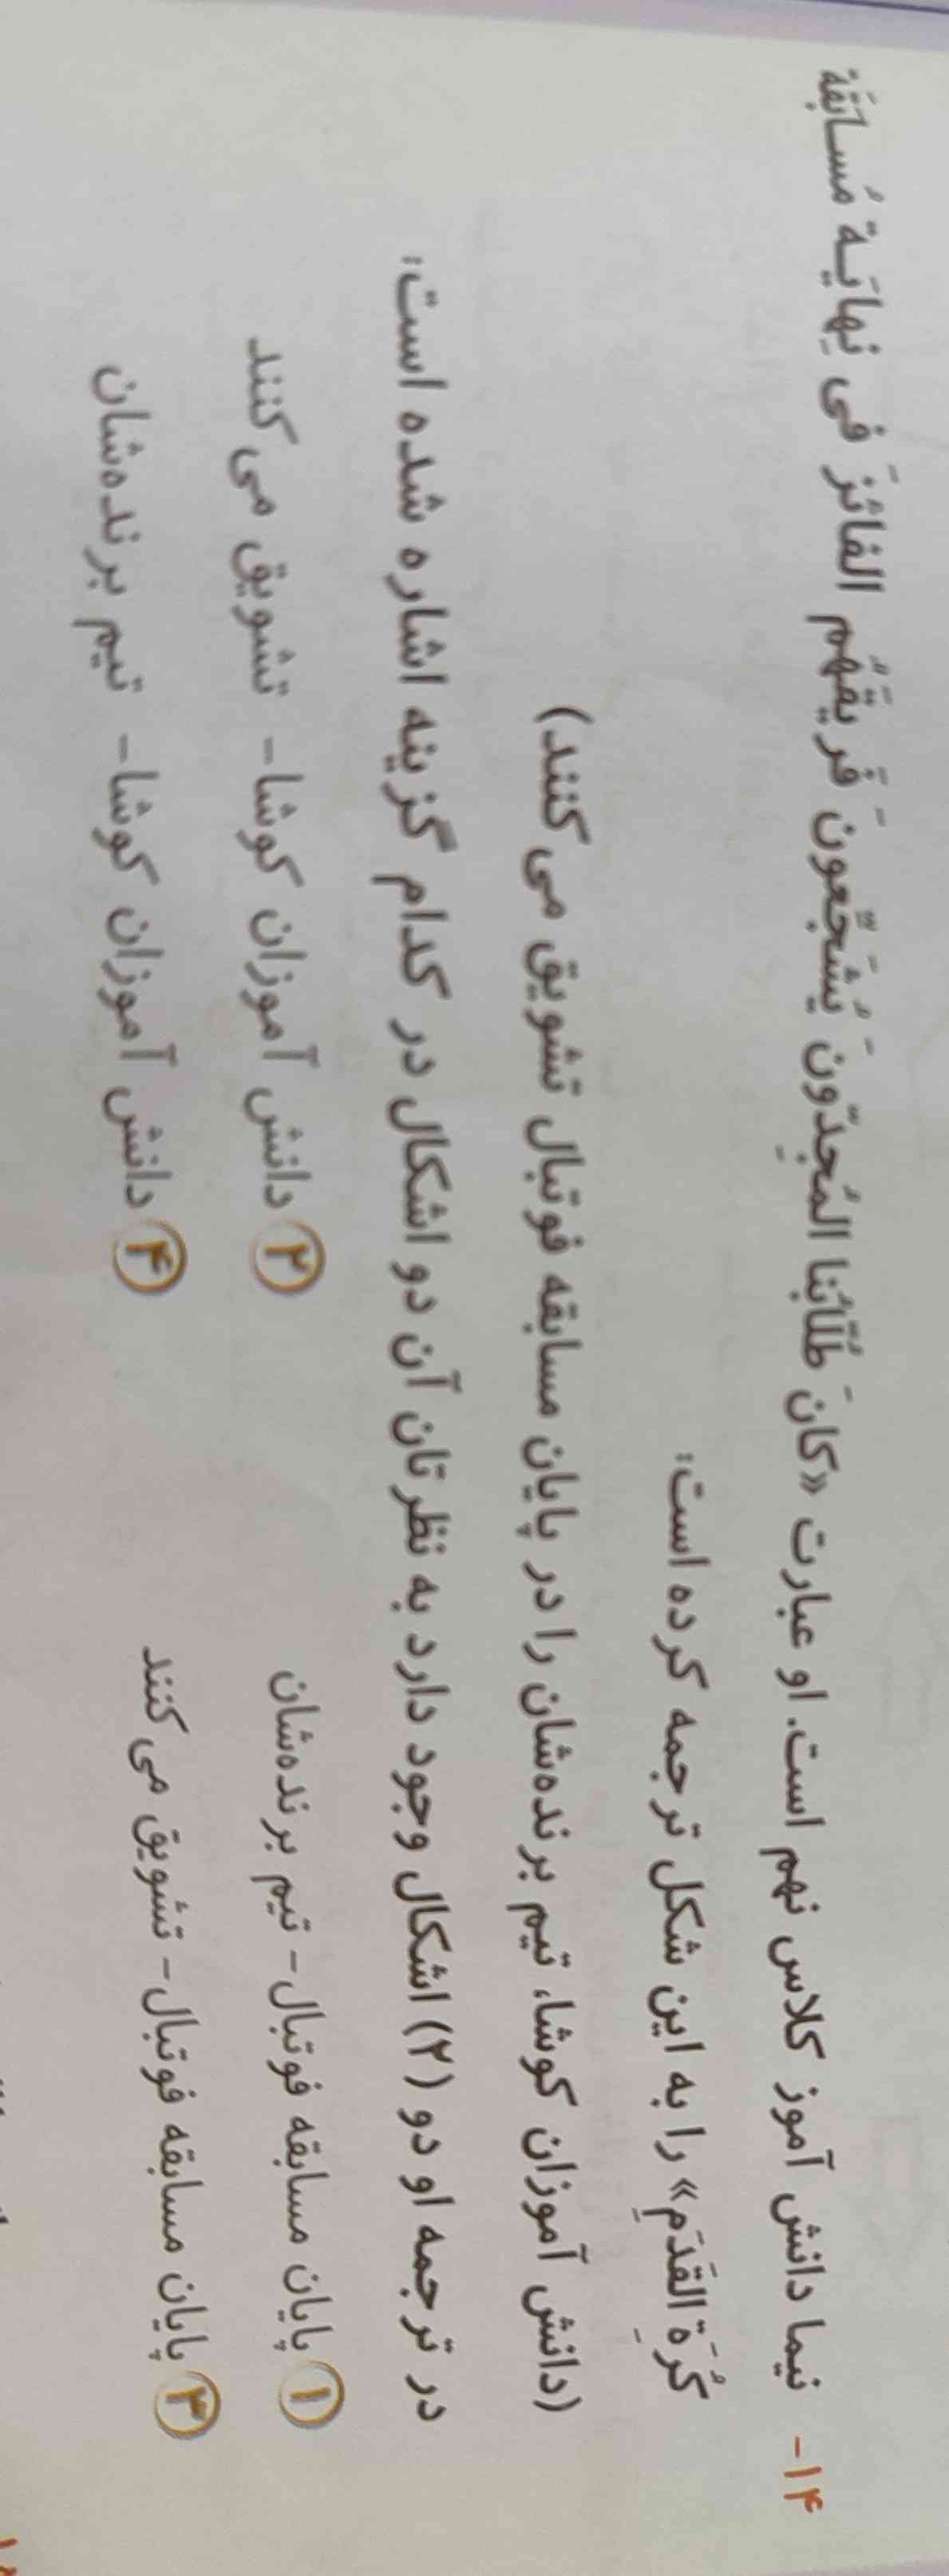 ۱۴- نیما دانش آموز کلاس نهم است. او عبارت «کانَ طُلّابُنا المُجِدّونَ یُشَجِّعونَ فَریقَهُم الفائزَ فی نِهایَة مُسابَقَة
کُرَةِ القَدَمِ» را به این شکل ترجمه کرده است:
(دانش آموزان کوشا، تیم برنده‌شان را در پایان مسابقه فوتبال تشویق می‌کنند)
در ترجمه او دو (۲) اشکال وجود دارد به نظرتان آن دو اشکال در کدام گزینه اشاره شده است:
۱ پایان مسابقه فوتبال- تیم برنده‌شان ۲ دانش آموزان کوشا- تشویق می‌کنند
۳ پایان مسابقه فوتبال- تشویق می‌کنند ۴ دانش آموزان کوشا- تیم برنده‌شان